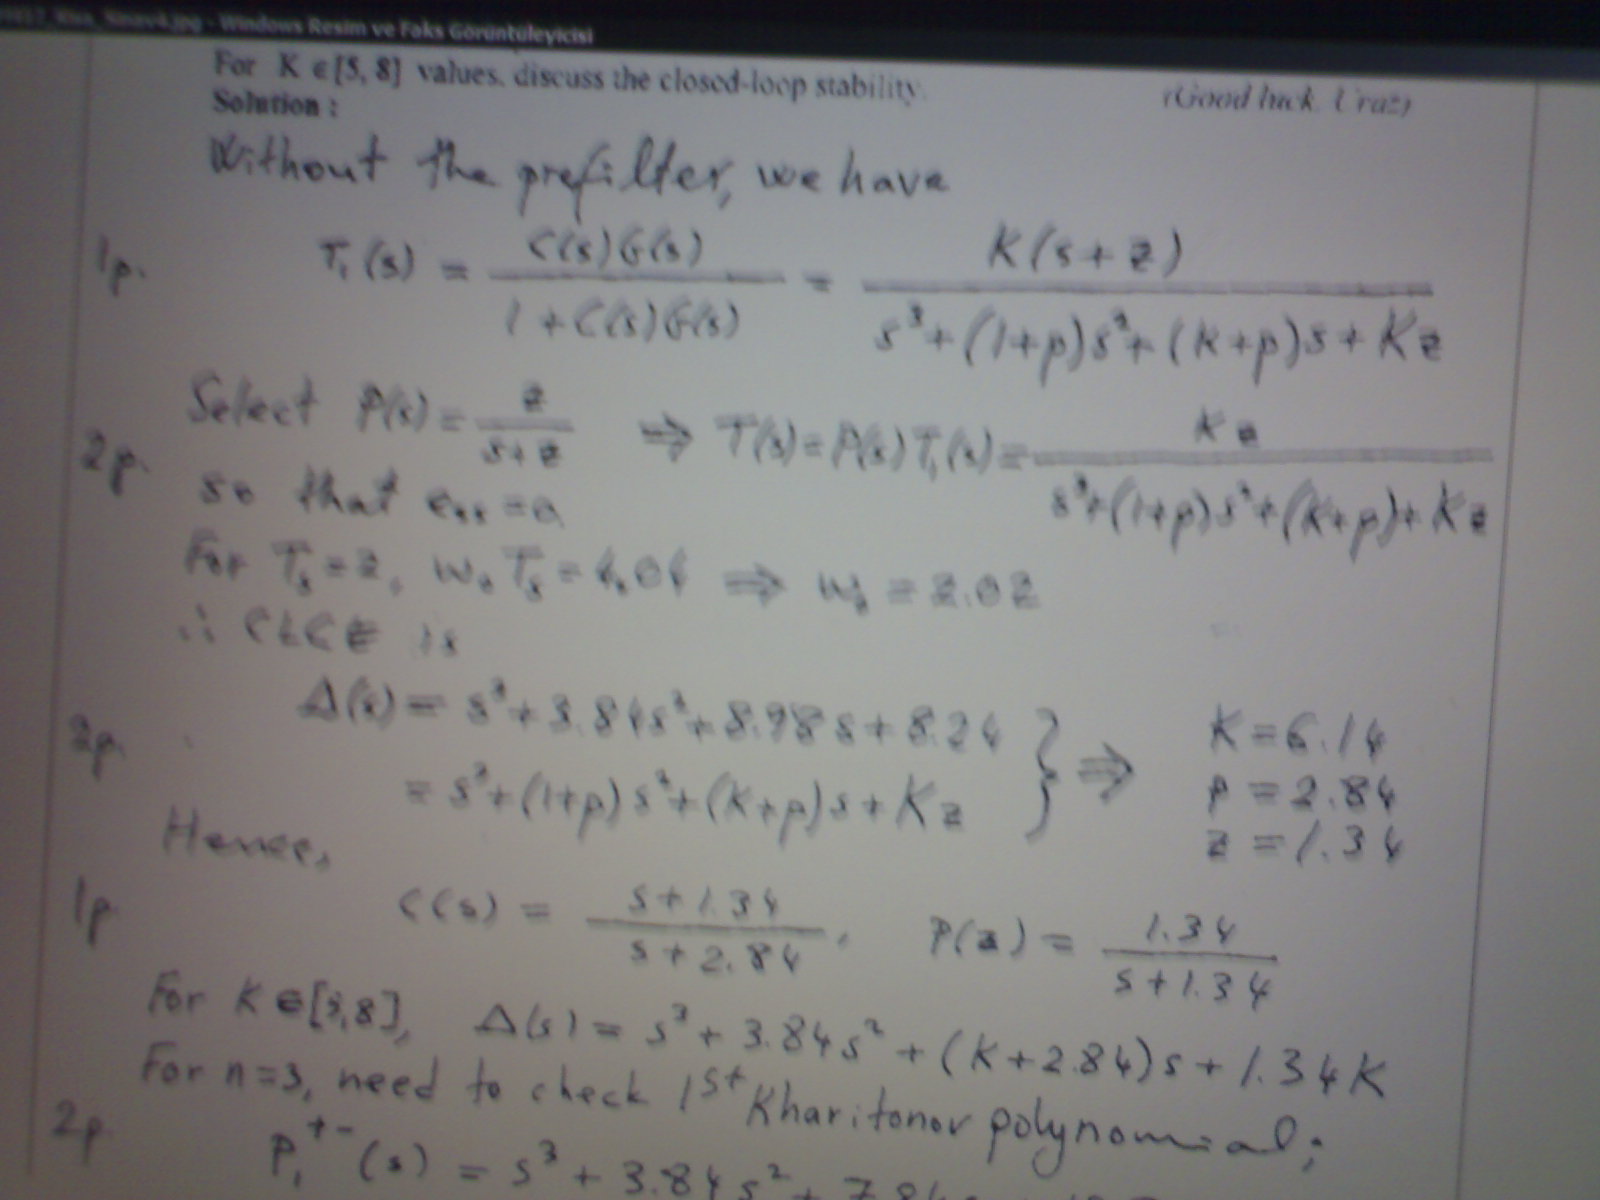 Sinav4.jpg - Windows Resim ve Faks Görüntüleyicisi
For K ∈[5, 8] values, discuss the closed-loop stability.
(Good luck, Uraz)
Solution :
Without the prefilter, we have
1p. T₁(s) = C(s)G(s) / 1+C(s)G(s) = K(s+z) / s³+(1+p)s²+(K+p)s+Kz
Select P(s) = z / s+z ⇒ T(s)=P(s)T₁(s)= Kz / s³+(1+p)s²+(K+p)+Kz
2p.
so that ess=0
For Ts=2, w₀Ts=4.04 ⇒ w₀=2.02
∴ CLCE is
Δ(s)= s³+3.84s²+8.98s+8.24
= s³+(1+p)s²+(K+p)s+Kz } ⇒ K=6.14
p=2.84
z=1.34
2p.
Hence,
1p C(s) = s+1.34 / s+2.84 , P(s) = 1.34 / s+1.34
For K∈[5,8], Δ(s) = s³+3.84s²+(K+2.84)s+1.34K
For n=3, need to check 1st Kharitonov polynomial;
2p P₁⁺⁻(s) = s³+3.84s²+7.84s